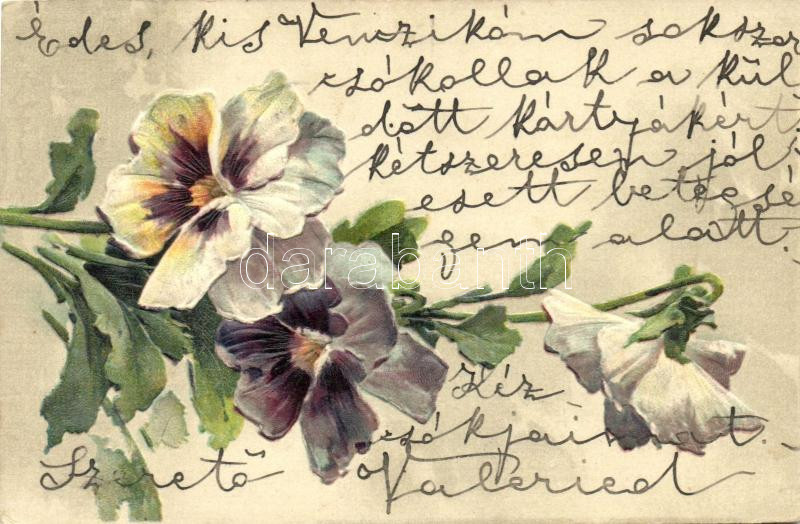 Édes, kis Venczikém sokszor
csókollak a kül
dött kártyákért
kétszeresen jól
esett betegsé
gem alatt.
darabanth
Kéz
csókjaimat.
Szerető Valéried